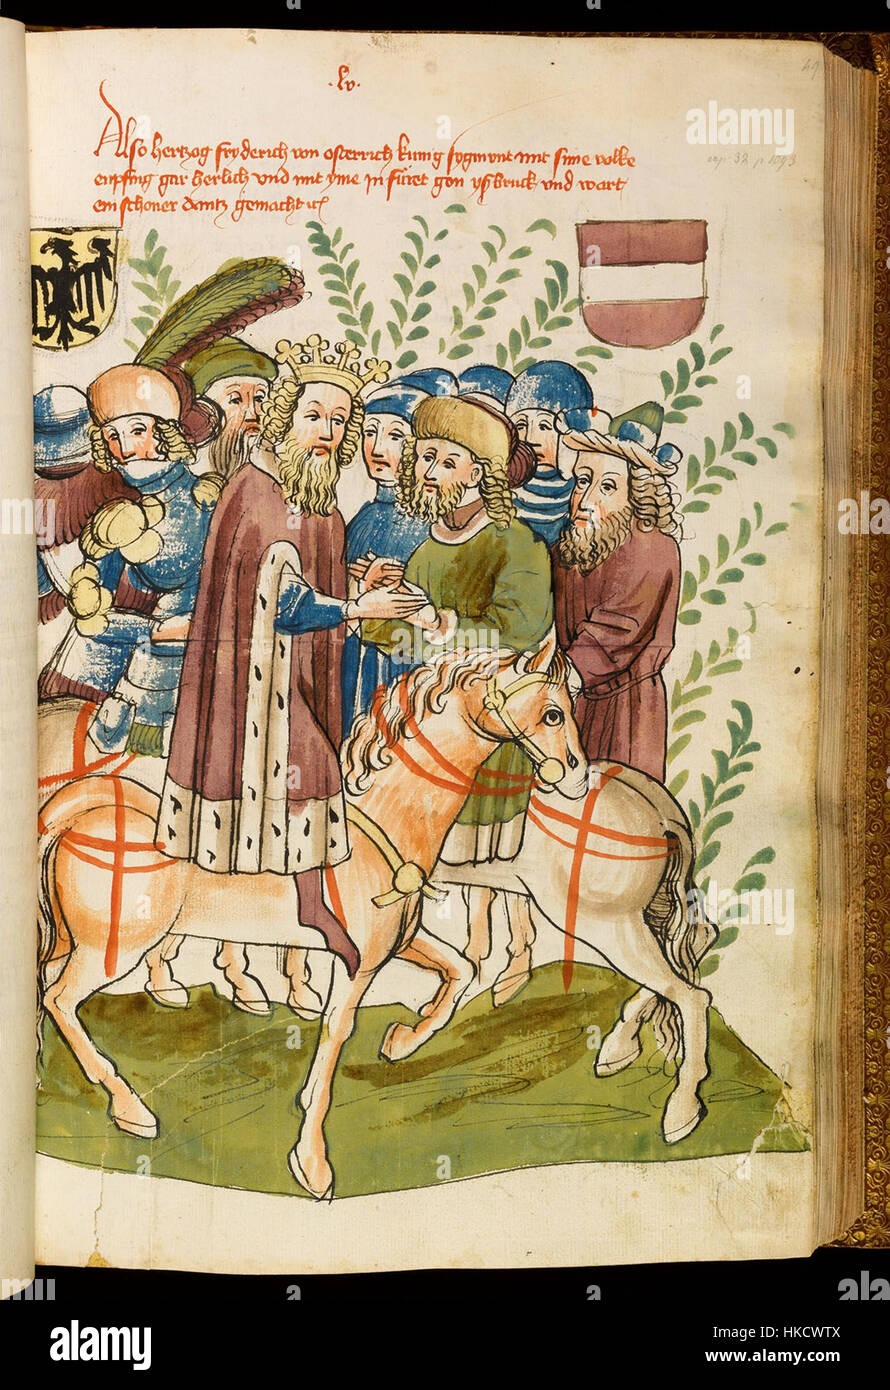 · lv ·
49
Also hertzog fryderich von osterrich kunig sygmunt mit sime volke
enpfing gar herlich vnd mit yme in furet gon yßbruck vnd wart
ein schoner dantz gemacht
cap. 32 p. 1093
alamy
Image ID: HKCWTX
www.alamy.com